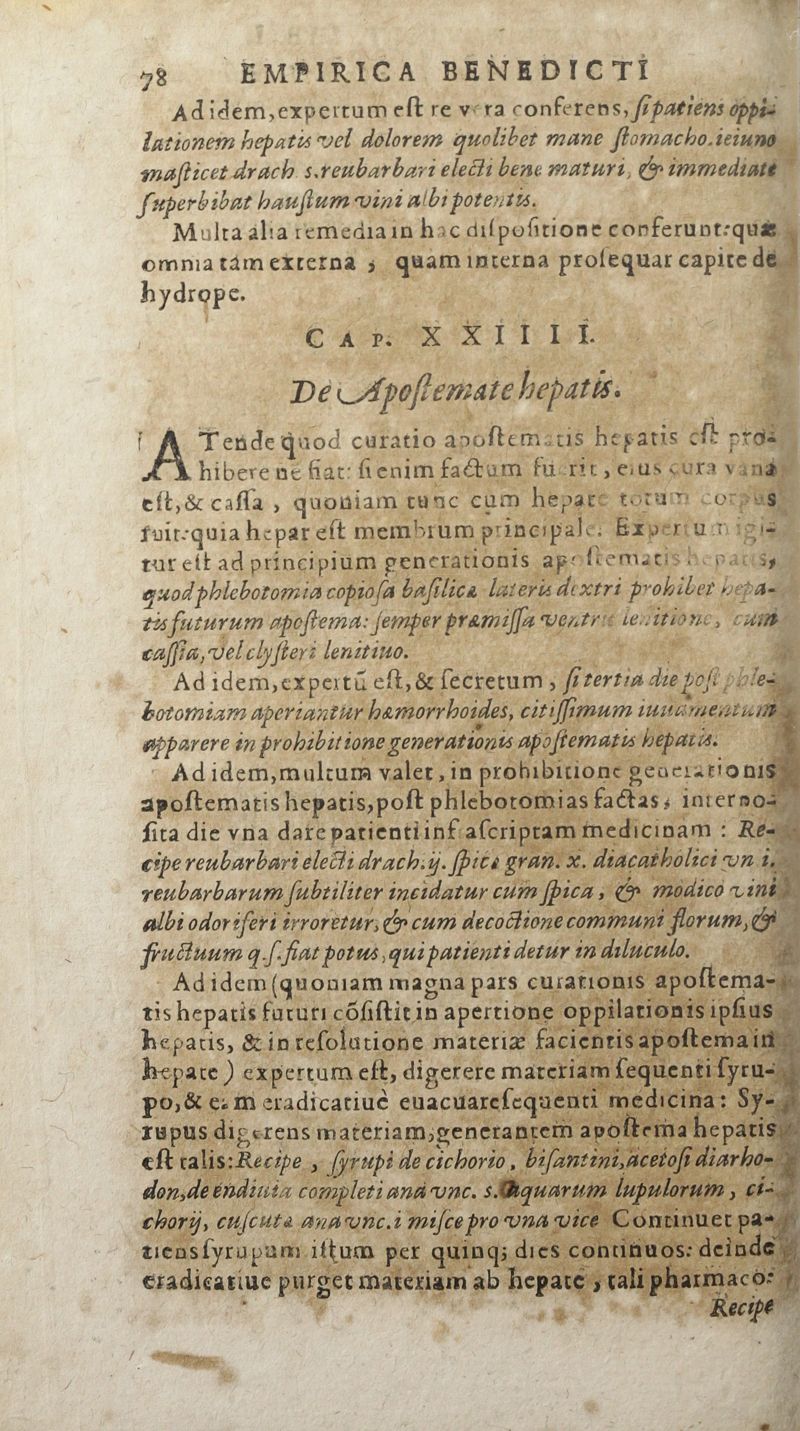 78 EMPIRICA BENEDICTI
Ad idem, expertum eſt re vera conferens, ſi patiens oppi-
lationem hepatis vel dolorem quolibet mane ſtomacho ieiuno
maſticet drach s. reubarbari electi bene maturi, & immediate
ſuperbibat hauſtum vini albi potentis.
Multa alia remedia in hac diſpoſitione conferunt: quæ
omnia tàm externa, quam interna proſequar capite de
hydrope.
CAP. XXIIII.
De Apoſtemate hepatis.
ATende quod curatio apoſtematis hepatis eſt pro-
hibere ne fiat: ſi enim factum fuerit, eius cura vana
eſt, & caſſa, quoniam tunc cum hepate totum corpus
fuit: quia hepar eſt membrum principale. Expertum igi-
tur eſt ad principium generationis apoſtematis hepatis,
quod phlebotomia copioſa baſilicæ lateris dextri prohibet hepa-
tis futurum apoſtema: ſemper præmiſſa ventris lenitione, cum
caſſia, vel clyſteri lenitiuo.
Ad idem, expertū eſt, & ſecretum, ſi tertia die poſt phle-
botomiam aperiantur hæmorrhoides, citiſſimum iuuamentum
apparere in prohibitione generationis apoſtematis hepatis.
Ad idem, multum valet, in prohibitione generationis
apoſtematis hepatis, poſt phlebotomias factas, interpo-
ſita die vna dare patienti infraſcriptam medicinam: Re-
cipe reubarbari electi drach. ij. ſpicæ gran. x. diacatholici vn i.
reubarbarum ſubtiliter incidatur cum ſpica, & modico vini
albi odoriferi irroretur, & cum decoctione communi florum, &
fructuum q. ſ. fiat potus, qui patienti detur in diluculo.
Ad idem (quoniam magna pars curationis apoſtema-
tis hepatis futuri cōſiſtit in apertione oppilationis ipſius
hepatis, & in reſolutione materiæ facientis apoſtema in
hepate) expertum eſt, digerere materiam ſequenti ſyru-
po, & eam eradicatiuè euacuare ſequenti medicina: Sy-
rupus digerens materiam, generantem apoſtema hepatis
eſt talis: Recipe, ſyrupi de cichorio, biſantini, acetoſi diarho-
don, de endiuia completi ana vnc. s. aquarum lupulorum, ci-
chorij, cuſcutæ ana vnc. i miſce pro vna vice Continuet pa-
tiens ſyrupum iſtum per quinq; dies continuos: deinde
eradicatiue purget materiam ab hepate, tali pharmaco:
Recipe